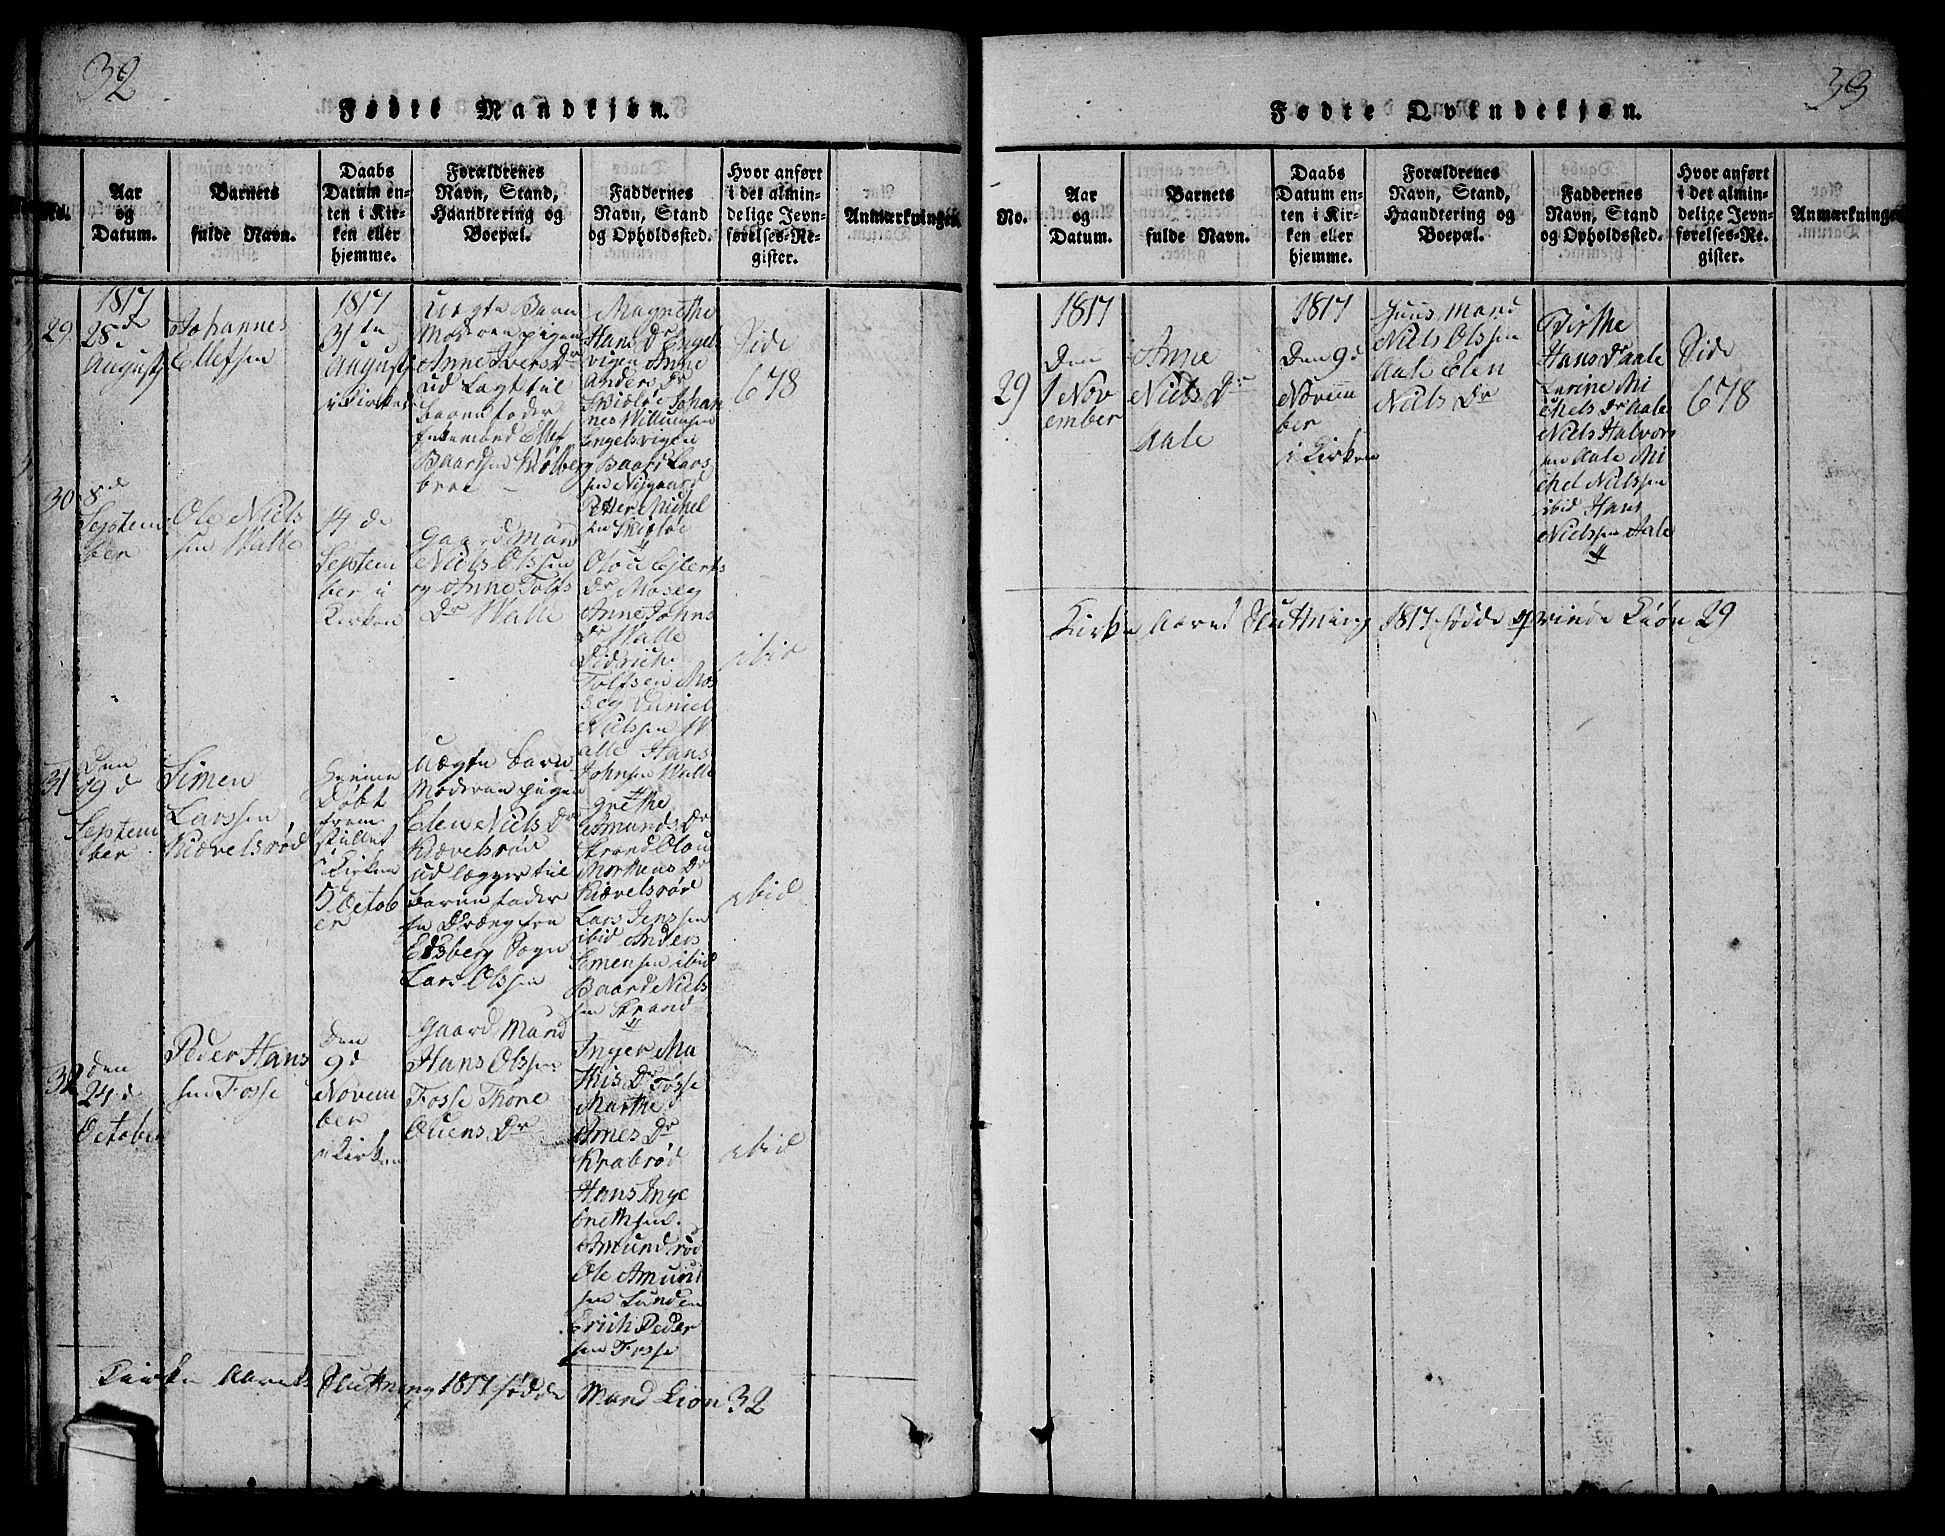 32
Fødte Mandkjøn.
No.
Aar
og
Datum.
Barnets
fulde Navn.
Daabs
Datum en-
ten i Kir-
ken eller
hjemme.
Forældrenes
Navn, Stand,
Haandtering og
Boepæl.
Faddernes
Navn, Stand
og Opholdssted.
Hvor anført
i det almin-
delige Jevn-
førelses-Re-
gister.
Anmærkninger
29
1817
28de
August
Johannes
Ellefsen
1817
31te
August
i Kirken
Uægte Barn
Moderen pigen
Anne Ivers Dr
ud Lagt til
barne fader
Enkemand Ellef
Baardsen Kølberg
braae
Magrethe
Hans Dr Engel
vigen Anne
Anders Dr
Skibløe Johan
nes Willumsen
Engelsvigen
Baard Lars
sen Nygaard
Petter Michel
sen Skibløe
Side
678
30
8de
Septem
ber
Ole Niels
sen Walle
14 de
Septem
ber i
Kirken
Gaardmand
Niels Olssen
og Anne Tolfs
Dr Walle
Oloue Ejlerts
Dr Moseg
Anne Johns
Dr Walle
Didrich
Tolfsen Mos
eg Daniel
Nielssen W
alle Hans
Johnsen Walle
ibid
31
Den
19 d
Septem
ber
Simen
Larssen
Kiævelsrød
Hjemme
Døbt
frem
stillet
i Kirken
5 Octob
er
Uægte barn
Moderen pigen
Elen Niels Dr
Kiævelsrød
ud lægger til
barne fader
en Dræng fra
Edsberg Sogn
Lars Olssen
Grethe
Amunds Dr
Strand Olou
Mortens Dr
Kiævelsrød
Lars Jenssen
ibid Anders
Simensen ibid
Baard Niels
sen Strand
ibid
32
den
24 d
October
Peder Hans
sen Fosse
den
9 d
Novem
ber
i Kirken
Gaard Mand
Hans Olssen
Fosse Thore
Ouens Dr
Inger Ma
this Dr Fosse
Marthe
Arnes Dr
Krabrød
Hans Inge
brethsen
Amundrød
Ole Amund
sen Lunden
Erich Peder
sen Fosse
ibid
Kirke Aarets Sluttning 1817 fødde Mand Kiøn 32
33
Fødte Qvindekjøn.
No.
Aar
og
Datum.
Barnets
fulde Navn.
Daabs
Datum en-
ten i Kir-
ken eller
hjemme.
Forældrenes
Navn, Stand,
Haandtering og
Boepæl.
Faddernes
Navn, Stand
og Opholdssted.
Hvor anført
i det almin-
delige Jevn-
førelses-Re-
gister.
Anmærkninger
29
1817
Den
1 Nov
ember
Anne
Niels Dr
Aale
1817
Den 9 d
Novem
ber
i Kirken
Huus Mand
Niels Olssen
Aale Elen
Niels Dr
Birthe
Hans Dr Aale
Larine Mi
chels Dr Aale
Niels Halvors
sen Aale Mi
chel Nielssen
ibid Hans
Nielssen Aale
Side
678
Kirke Aarets Sluttning 1817 fødde qvinde Kiøn 29